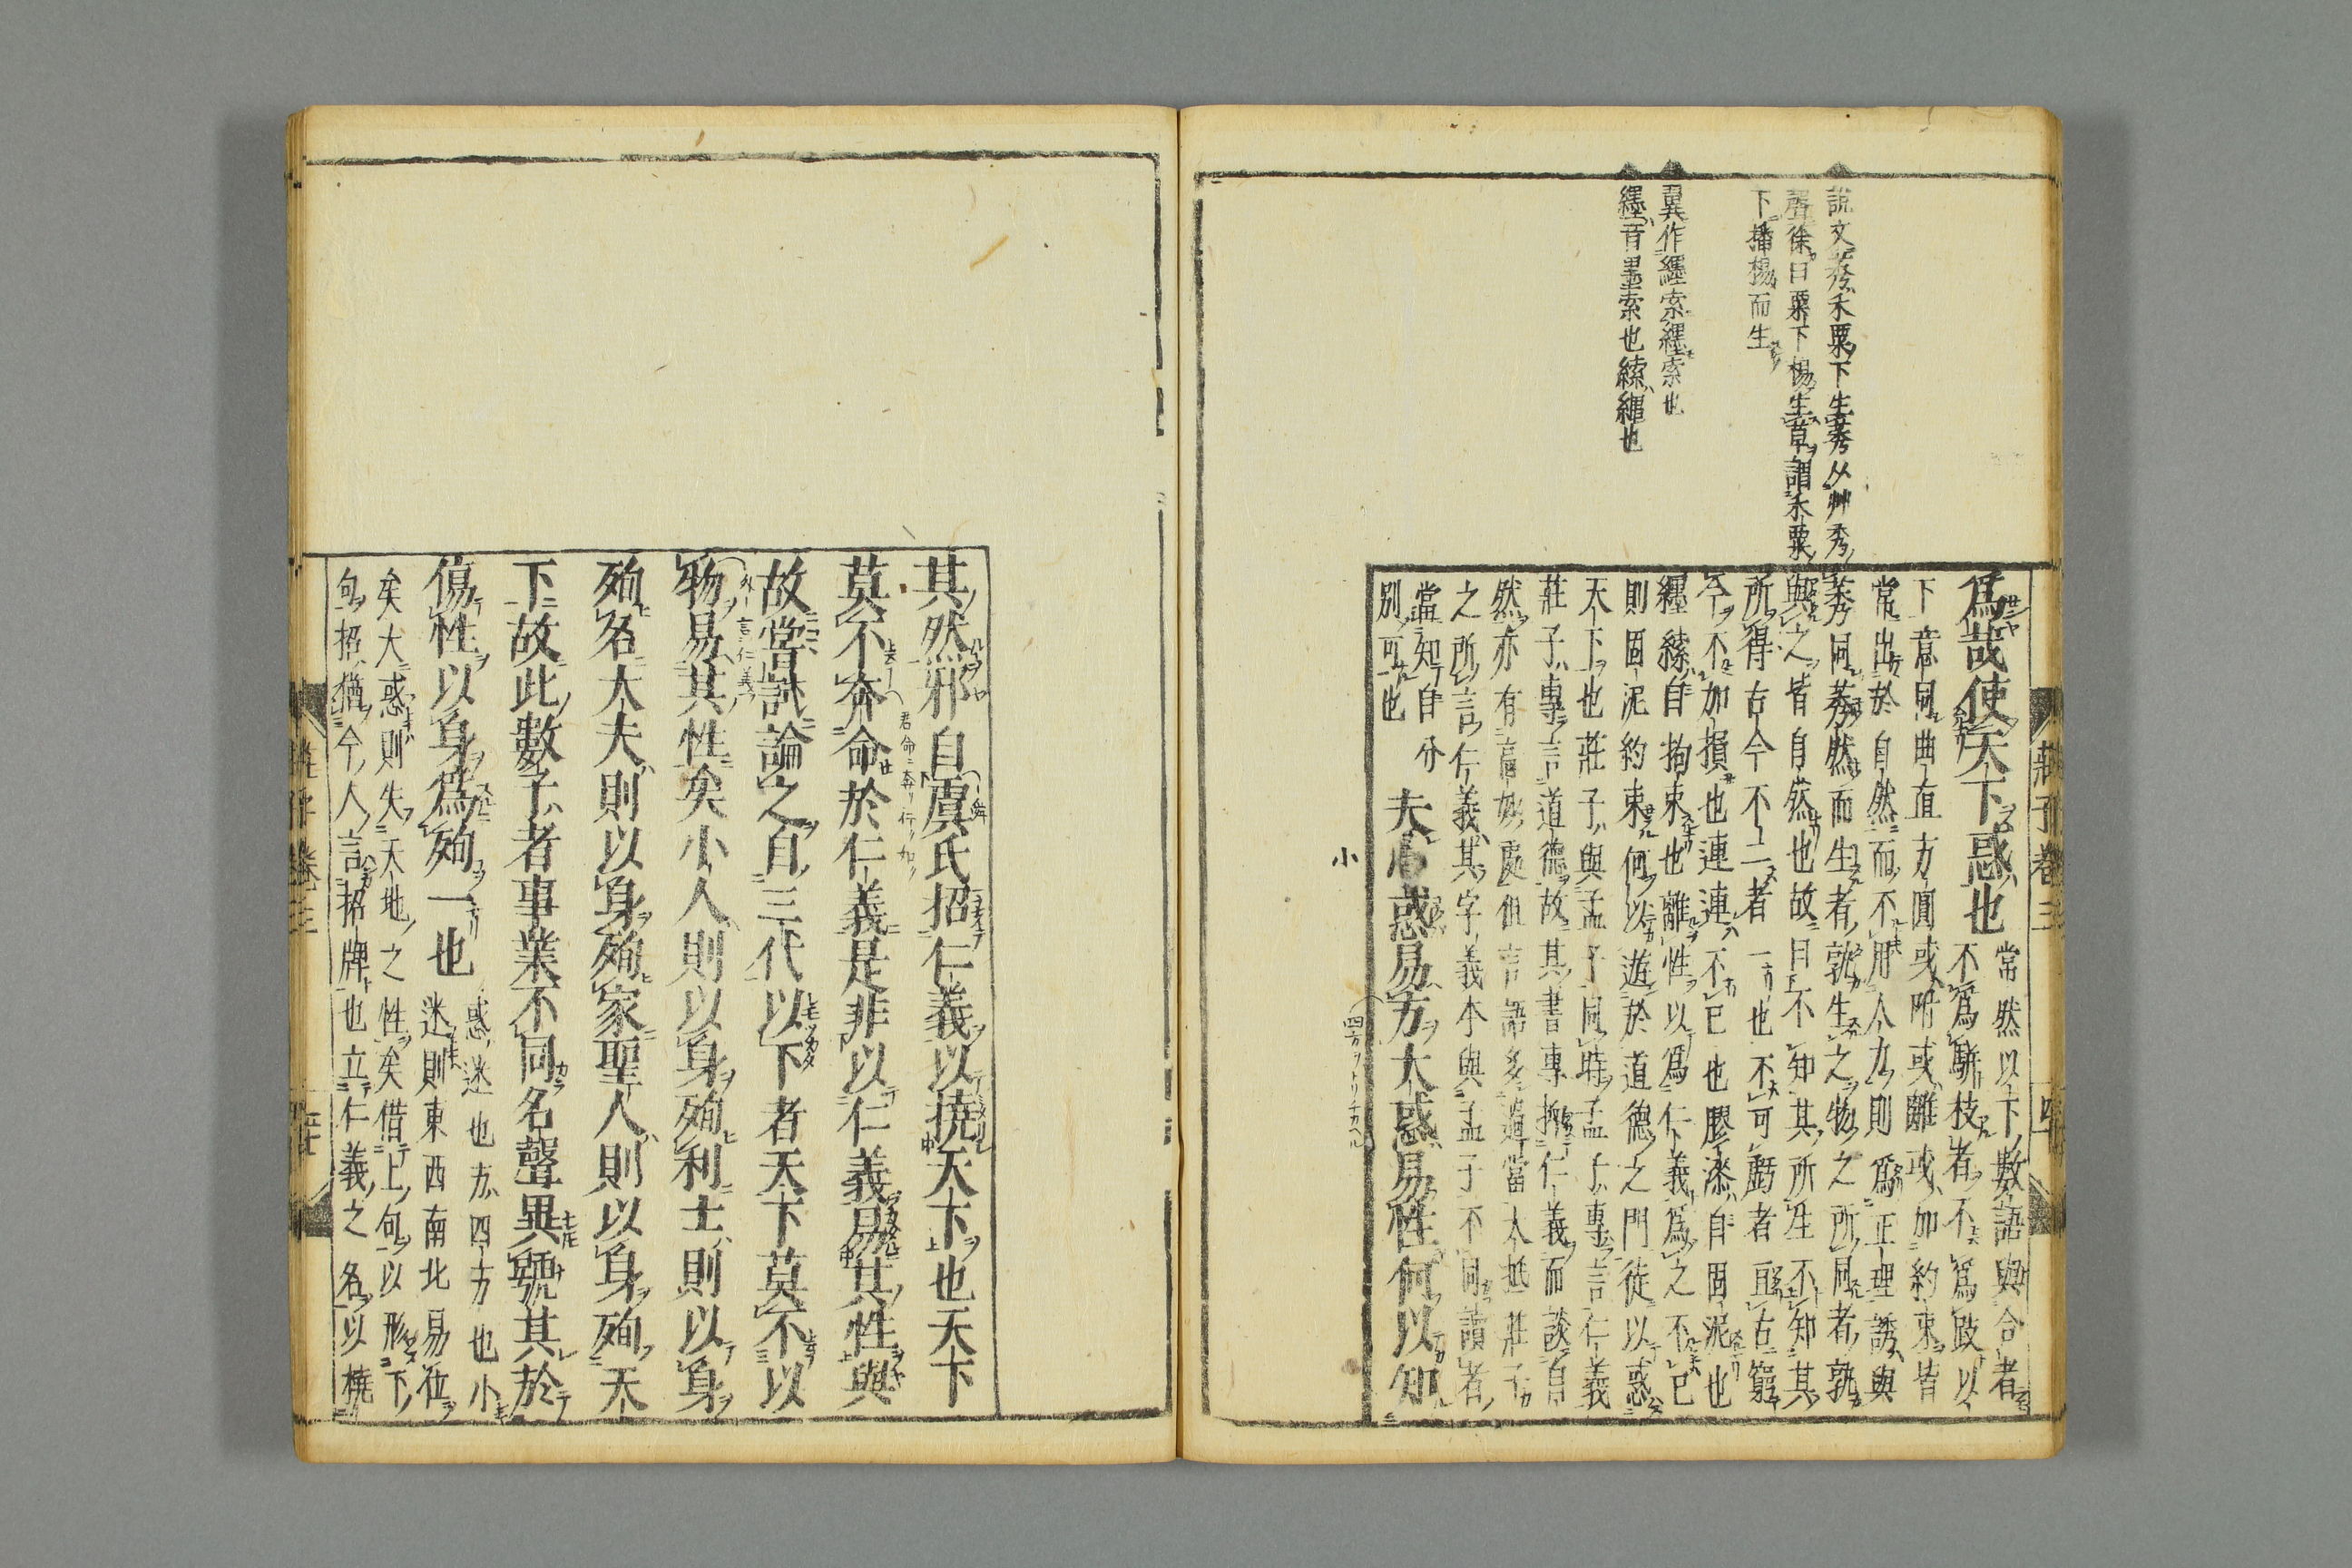 說文莠禾粟下生莠从艸秀
聲徐曰粟下揚生草謂禾粟
下播揚而生
異作纆索纆索也
纆音墨索也纆繩也
爲哉使天下惑也
常然以下數語與合者
不爲騈枝者不爲跂以
下意同曲直方圓或附或離或加約束皆
常出於自然而不用人力則爲正理誘與
莠同莠然而生者孰生之物之所同者孰
與之皆自然也故曰不知其所生不知其
所得古今不二者一也不可虧者亘古窮
今不加損也連連不已也膠漆自固泥也
纆繩自拘束也離性以爲仁義爲之不已
則固泥約束何以遊於道德之門徒以惑
天下也莊子與孟子同時孟子專言仁義
莊子專言道德故其書專擯仁義而談自
然亦有高妙處但言語多過當大抵莊子
之所言仁義其字義本與孟子不同讀者
當知自分
別可也
夫小惑易方大惑易性何以知
小
其然邪自虞氏招仁義以撓天下也天下
莫不奔命於仁義是非以仁義易其性與
故嘗試論之自三代以下者天下莫不以
物易其性矣小人則以身殉利士則以身
殉名大夫則以身殉家聖人則以身殉天
下故此數子者事業不同名聲異號其於
傷性以身爲殉一也
惑迷也方四方也小
迷則東西南北易位
矣大惑則失天地之性矣借上句以形下
句招猶今人言招牌也立仁義之名以撓
莊子卷三